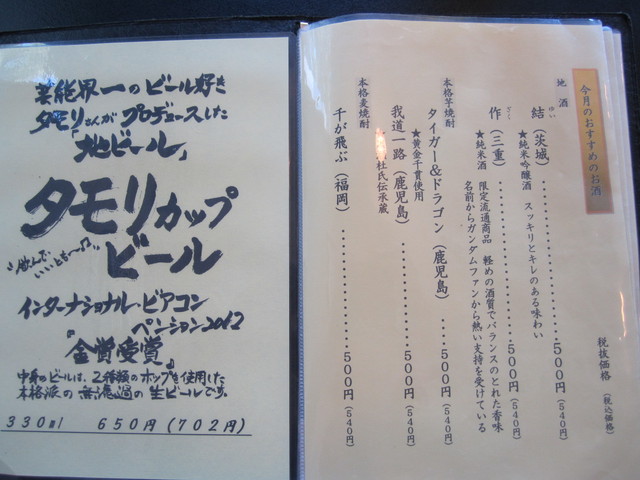 芸能界一のビール好き
タモリさんがプロデュースした
「地ビール」
タモリカップ
ビール
"飲んで
いいとも〜♫"
インターナショナル・ビアコン
ペンション2012
『金賞受賞』
中身のビールは、2種類のホップを使用した
本格派の無濾過の生ビールです。
330ml 650円(702円)
今月のおすすめのお酒
税抜価格 (税込価格)
地酒
結(茨城)……500円(540円)
ゆい
★純米吟醸酒 スッキリとキレのある味わい
作(三重)……500円(540円)
ざく
★純米酒 限定流通商品 軽めの酒質でバランスのとれた香味
名前からガンダムファンから熱い支持を受けている
本格芋焼酎
タイガー&ドラゴン(鹿児島)……500円(540円)
★黄金千貫使用
我道一路(鹿児島)……500円(540円)
杜氏伝承蔵
本格麦焼酎
千が飛ぶ(福岡)……500円(540円)